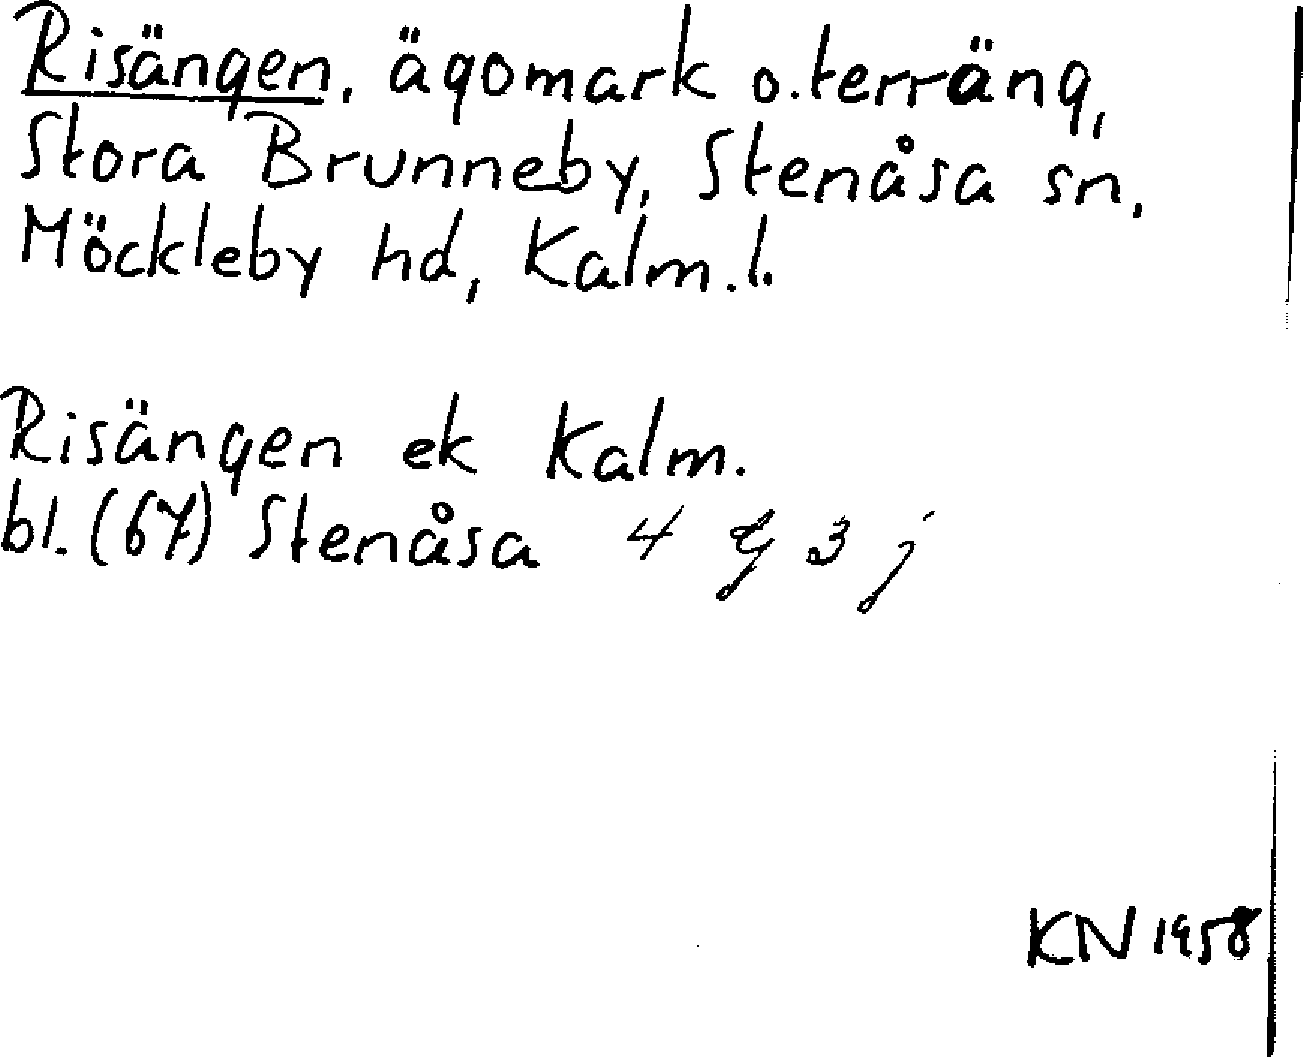 Risängen, ägomark o. terräng,
Stora Brunneby, Stenåsa sn,
Möckleby hd, Kalm. l.
Risängen ek Kalm.
bl. (67) Stenåsa 4 G 3 j
KN 1958